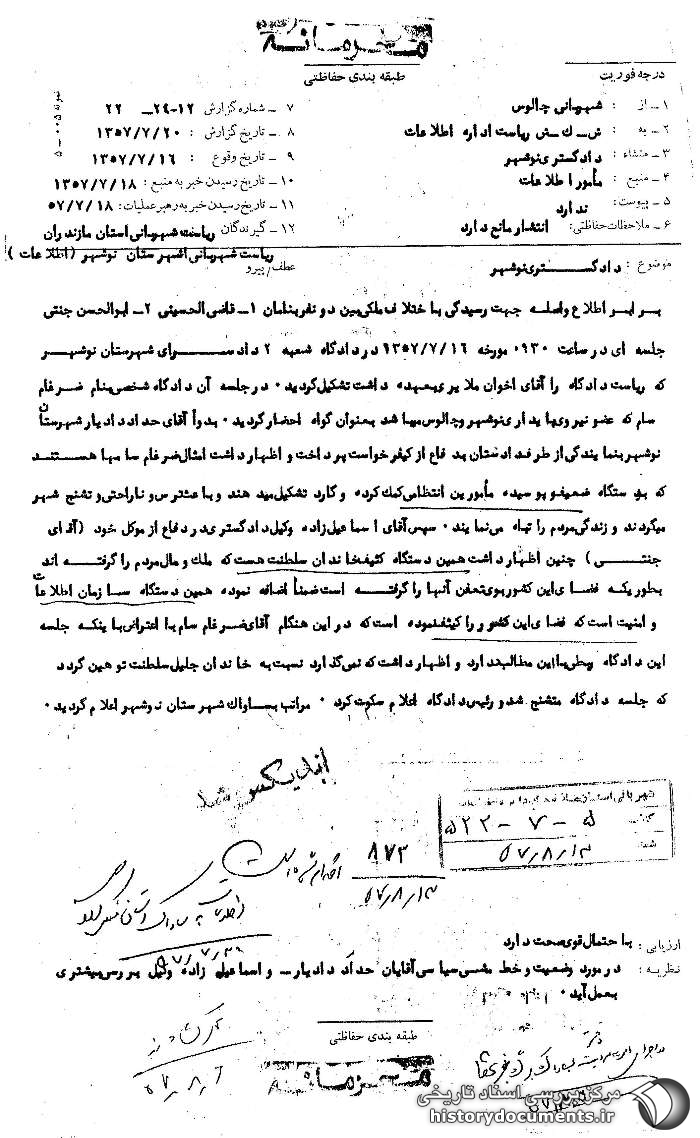 محرمانه
درجه فوریت
طبقه بندی حفاظتی
۱ـ از : شهربانی چالوس
۲ـ به : ش ـ ك ـ ش ریاست اداره اطلاعات
۳ـ منشاء : دادگستری نوشهر
۴ـ منبع : مأمور اطلاعات
۵ـ پیوست : ندارد
۶ـ ملاحظات حفاظتی: انتشار مانع دارد
۷ ـ شماره گزارش ۱۲-۲۴ـ ۲۲
۸ ـ تاریخ گزارش : ۱۳۵۷/۷/۲۰
۹ ـ تاریخ وقوع : ۱۳۵۷/۷/۱۶
۱۰ ـ تاریخ رسیدن خبر به منبع : ۱۳۵۷/۷/۱۸
۱۱ ـ تاریخ رسیدن خبر به رهبر عملیات : ۵۷/۷/۱۸
۱۲ ـ گیرندگان ریاست شهربانی استان مازندران
ریاست شهربانی شهرستان نوشهر (اطلاعات)
عطف/پیرو
نمونه ۰۰۵ ـ ۵
موضوع : دادگستری نوشهر
برابر اطلاع واصله جهت رسیدگی با ختلاف ملکی بین دو نفر بنامان ۱ـ قاضی الحسینی ۲ـ ابوالحسن جنتی
جلسه ای در ساعت ۰۹۳۰ مورخه ۱۳۵۷/۷/۱۶ در دادگاه شعبه ۲ دادسرای شهرستان نوشهر
که ریاست دادگاه را آقای اخوان ملایری بعهده داشت تشکیل گردید ۰ در جلسه آن دادگاه شخصی بنام ضرغام
سام که عضو نیروی پایداری نوشهر و چالوس میباشد بعنوان گواه احضار گردید ۰ بدوأ آقای حداد دادیار شهرستان
نوشهر بنمایندگی از طرف دادستان بدفاع از کیفرخواست پرداخت و اظهار داشت امثال ضرغام سامها هستند
که بدستگاه ضعیف و پوسیده مأمورین انتظامی کمک کرده و گارد تشکیل میدهند و باعث ترس و ناراحتی و تشنج شهر
میگردند و زندگی مردم را تباه می نمایند ۰ سپس آقای اسماعیل زاده وکیل دادگستری در دفاع از موکل خود (آقای
جنتی ) چنین اظهار داشت همین دستگاه کثیف خاندان سلطنت هست که ملک و مال مردم را گرفته اند
بطوریکه فضای این کشور بوی تعفن آنها را گرفته است ضمنأ اضافه نموده همین دستگاه سازمان اطلاعات
و امنیت است که فضای این کشور را کیثف نموده است که در این هنگام آقای ضرغام سام با اعتراض با ینکه جلسه
این دادگاه ربطی باین مطالب ندارد و اظهار داشت که نمی گذارد نسبت به خاندان جلیل سلطنت توهین گردد
که جلسه دادگاه متشنج شد و رئیس دادگاه اعلام سکوت کرد ۰ مراتب بساواك شهرستان نوشهر اعلام گردید ۰
ایندیکس شد
شهربانی استان
۵۲۲ - ۷ - ۵
۵۷٫۸٫۱۳
۸۷۳
۵۷٫۸٫۱۳
ارزیابی : با حتمال قوی صحت دارد
نظریه : در مورد وضعیت و خط مشی سیاسی آقایان حداد دادیار ـ و اسماعیل زاده وکیل بررسی بیشتری
بعمل آید ۰
طبقه بندی حفاظتی
محرمانه
مرکز بررسی اسناد تاریخی
historydocuments.ir